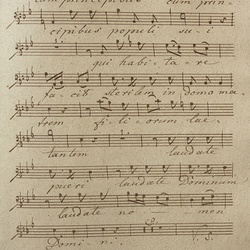 cum prin-
cipibus populi su - i
qui habi - ta - re
fa - cit sterilem in domo ma -
trem fi - li - orum lae -
tantem laudate
pueri laudate Dominum
laudate no - men
Domi - ni.